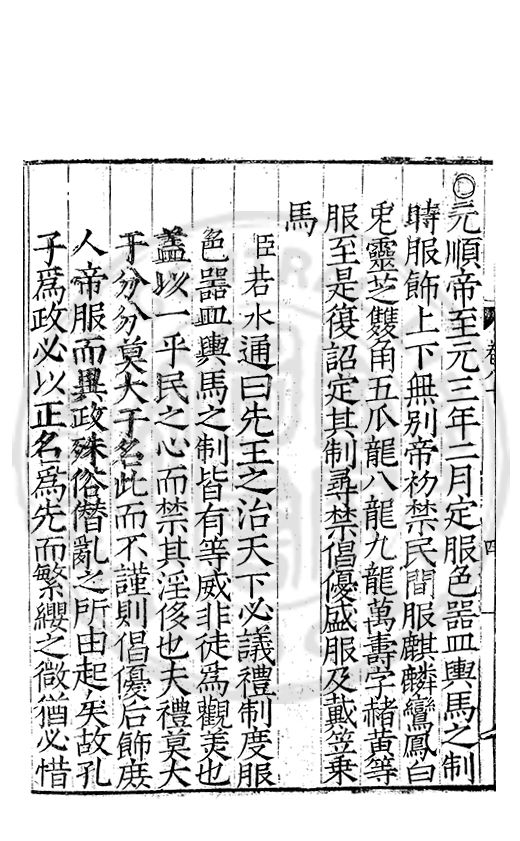 ○元順帝至元三年二月定服色器皿輿馬之制
時服飾上下無別帝初禁民間服麒麟鸞鳳白
兎靈芝雙角五爪龍八龍九龍萬壽字赭黃等
服至是復詔定其制尋禁倡優盛服及戴笠乗
馬
臣若水通曰先王之治天下必議禮制度服
色器皿輿馬之制皆有等威非徒爲觀美也
蓋以一乎民之心而禁其淫侈也夫禮莫大
于分分莫大于名此而不謹則倡優后飾庶
人帝服而異政殊俗僣亂之所由起矣故孔
子爲政必以正名爲先而繁纓之微猶必惜